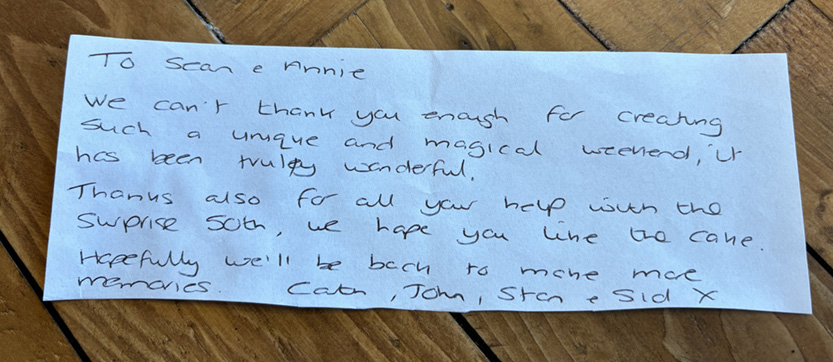 To Sean & Annie
We can't thank you enough for creating
such a unique and magical weekend, it
has been truly wonderful.
Thanks also for all your help with the
surprise 50th, we hope you like the cake.
Hopefully we'll be back to make more
memories. Cath, John, Stan & Sid X